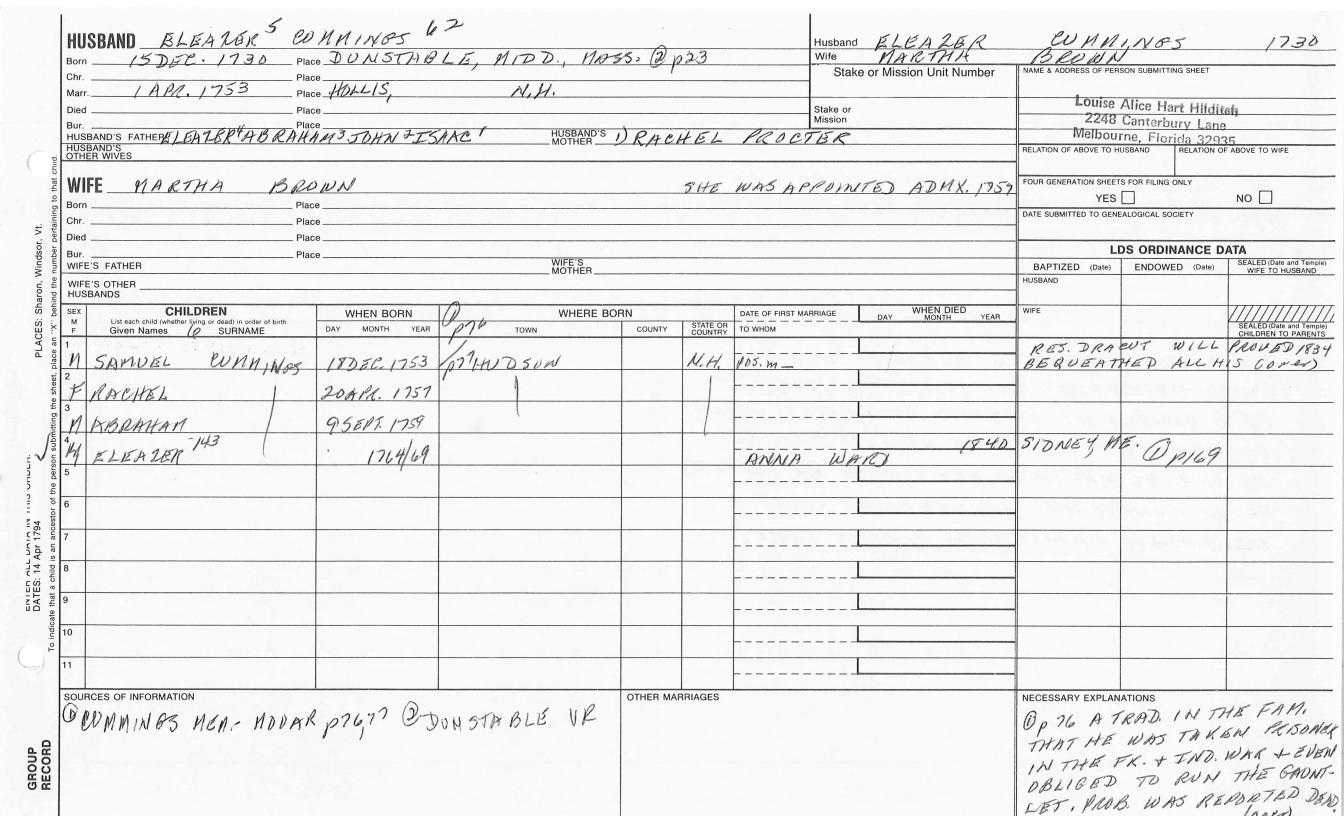 HUSBAND ELEAZER 5 CUMMINGS 62
Born 15 DEC. 1730 Place DUNSTABLE, MIDD., MASS. ② p23
Chr. Place
Marr. 1 APR. 1753 Place HOLLIS, N.H.
Died Place
Bur. Place
HUSBAND'S FATHER ELEAZER 4 ABRAHAM 3 JOHN 2 ISAAC 1 HUSBAND'S MOTHER 1) RACHEL PROCTER
HUSBAND'S OTHER WIVES
Husband ELEAZER CUMMINGS 1730
Wife MARTHA BROWN
Stake or Mission Unit Number
Stake or Mission
NAME & ADDRESS OF PERSON SUBMITTING SHEET
Louise Alice Hart Hilditch
2248 Canterbury Lane
Melbourne, Florida 32935
RELATION OF ABOVE TO HUSBAND RELATION OF ABOVE TO WIFE
FOUR GENERATION SHEETS FOR FILING ONLY
YES NO
DATE SUBMITTED TO GENEALOGICAL SOCIETY
WIFE MARTHA BROWN SHE WAS APPOINTED ADMX. 1759
Born Place
Chr. Place
Died Place
Bur. Place
WIFE'S FATHER WIFE'S MOTHER
WIFE'S OTHER HUSBANDS
LDS ORDINANCE DATA
BAPTIZED (Date) ENDOWED (Date) SEALED (Date and Temple) WIFE TO HUSBAND
HUSBAND
WIFE
SEALED (Date and Temple) CHILDREN TO PARENTS
SEX M F CHILDREN WHEN BORN ① p76 WHERE BORN DATE OF FIRST MARRIAGE WHEN DIED
List each child (whether living or dead) in order of birth
Given Names 6 SURNAME DAY MONTH YEAR TOWN COUNTY STATE OR COUNTRY TO WHOM DAY MONTH YEAR
1 M SAMUEL CUMMINGS 18 DEC. 1753 p77 HUDSON N.H. pos. m— RES. DRACUT WILL PROVED 1834
BEQUEATHED ALL HIS (over)
2 F RACHEL 20 APR. 1757
3 M ABRAHAM 9 SEPT. 1759
4 M ELEAZER -143 1764/69 ANNA WARD 1840 SIDNEY, ME. ① p169
5
6
7
8
9
10
11
SOURCES OF INFORMATION
① CUMMINGS MEM.- MOOAR p76,77 ② DUNSTABLE VR
OTHER MARRIAGES
NECESSARY EXPLANATIONS
① p76 A TRAD. IN THE FAM.
THAT HE WAS TAKEN PRISONER
IN THE FR. & IND. WAR & EVEN
OBLIGED TO RUN THE GAUNT-
LET. PROB. WAS REPORTED DEAD.
(over)
PLACES: Sharon, Windsor, Vt.
ENTER ALL DATA IN THIS ORDER:
DATES: 14 Apr 1794
To indicate that a child is an ancestor of the person submitting the sheet, place an "X" behind the number pertaining to that child.
GROUP RECORD